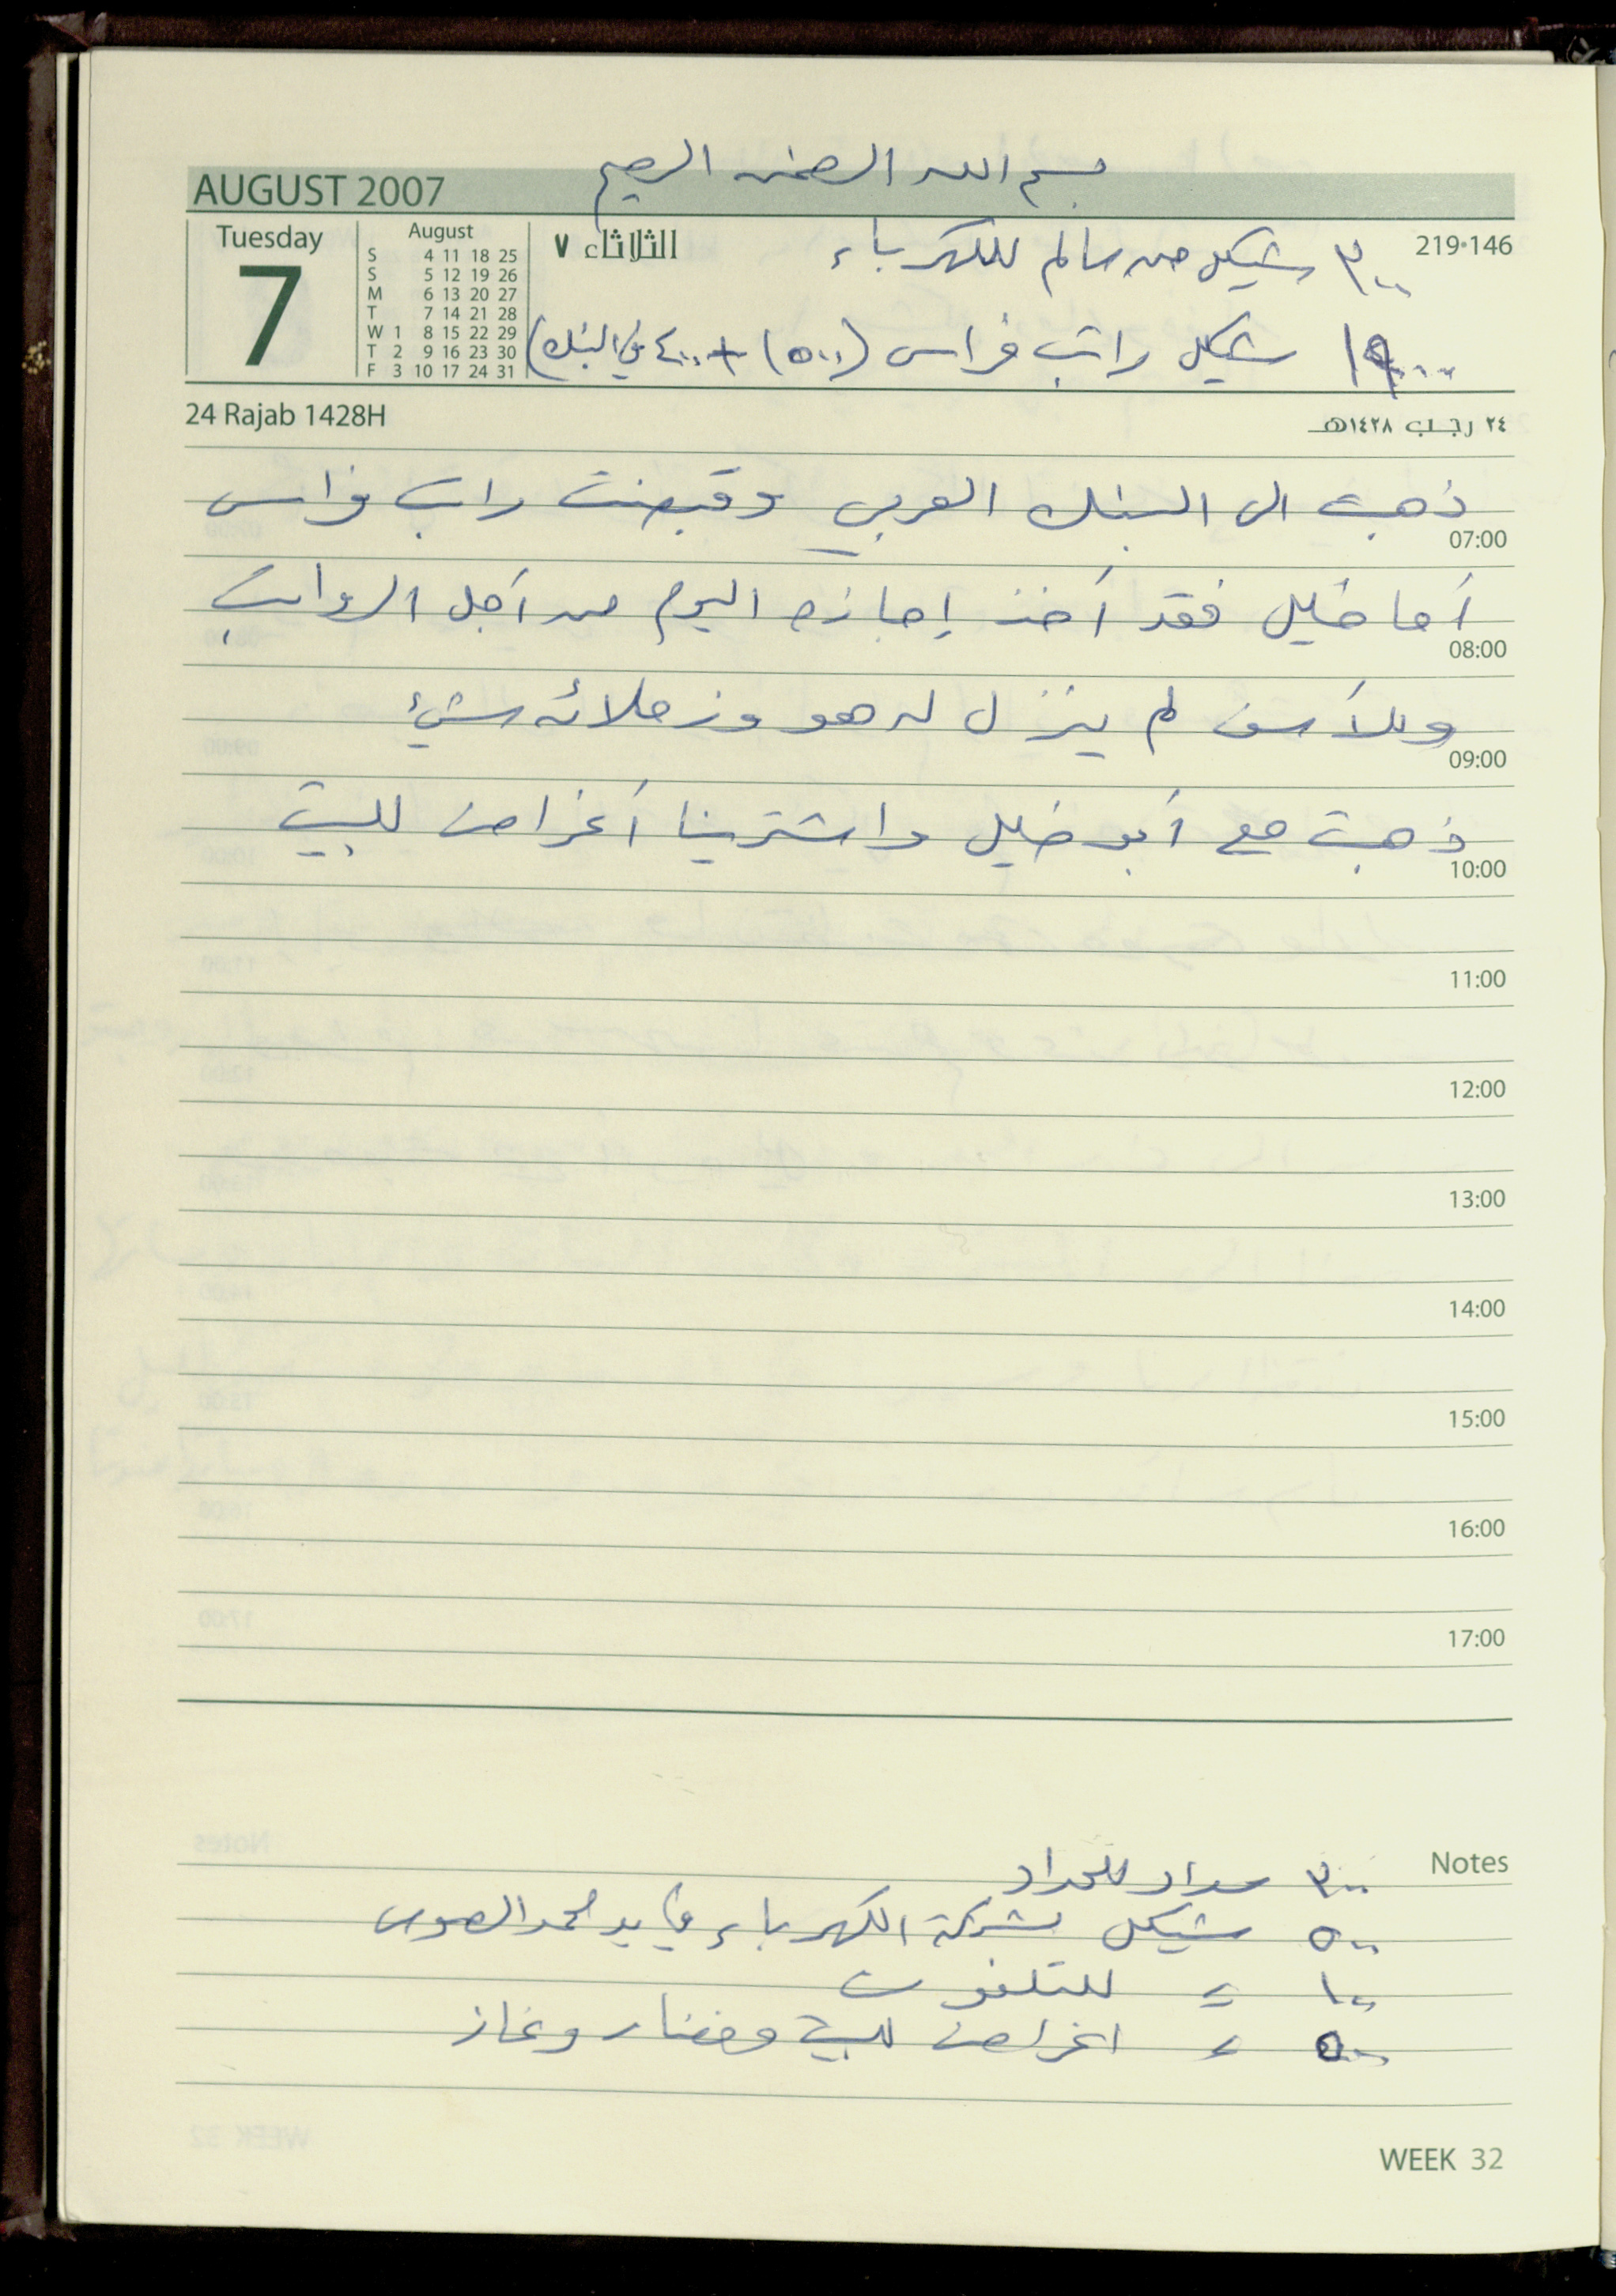 بسم الله الرحمن الرحيم
AUGUST 2007
Tuesday
7
August
S 4 11 18 25
S 5 12 19 26
M 6 13 20 27
T 7 14 21 28
W 1 8 15 22 29
T 2 9 16 23 30
F 3 10 17 24 31
الثلاثاء ٧
219·146
٣٠٠ شيكل من سالم للكهرباء
شيكل راتب فراس (٥٠٠) + ٤٠٠ في البنك)
24 Rajab 1428H
٢٤ رجب ١٤٢٨هـ
ذهبت الى البنك العربي وقبضت راتب فراس
07:00
أما خليل فقد أخذ إجازه اليوم من أجل الرواتب
08:00
وللأسف لم ينزل له هو وزملائه شيئ
09:00
ذهبت مع أبو خليل واشترينا أغراض للبيت
10:00
11:00
12:00
13:00
14:00
15:00
16:00
17:00
Notes
٣٠٠ سداد للحداد
٥٠٠ شيكل لشركة الكهرباء في يد محمد
١٠٠ = للتلفون
٥٠٠ = اغراض للبيت وخضار وغاز
WEEK 32